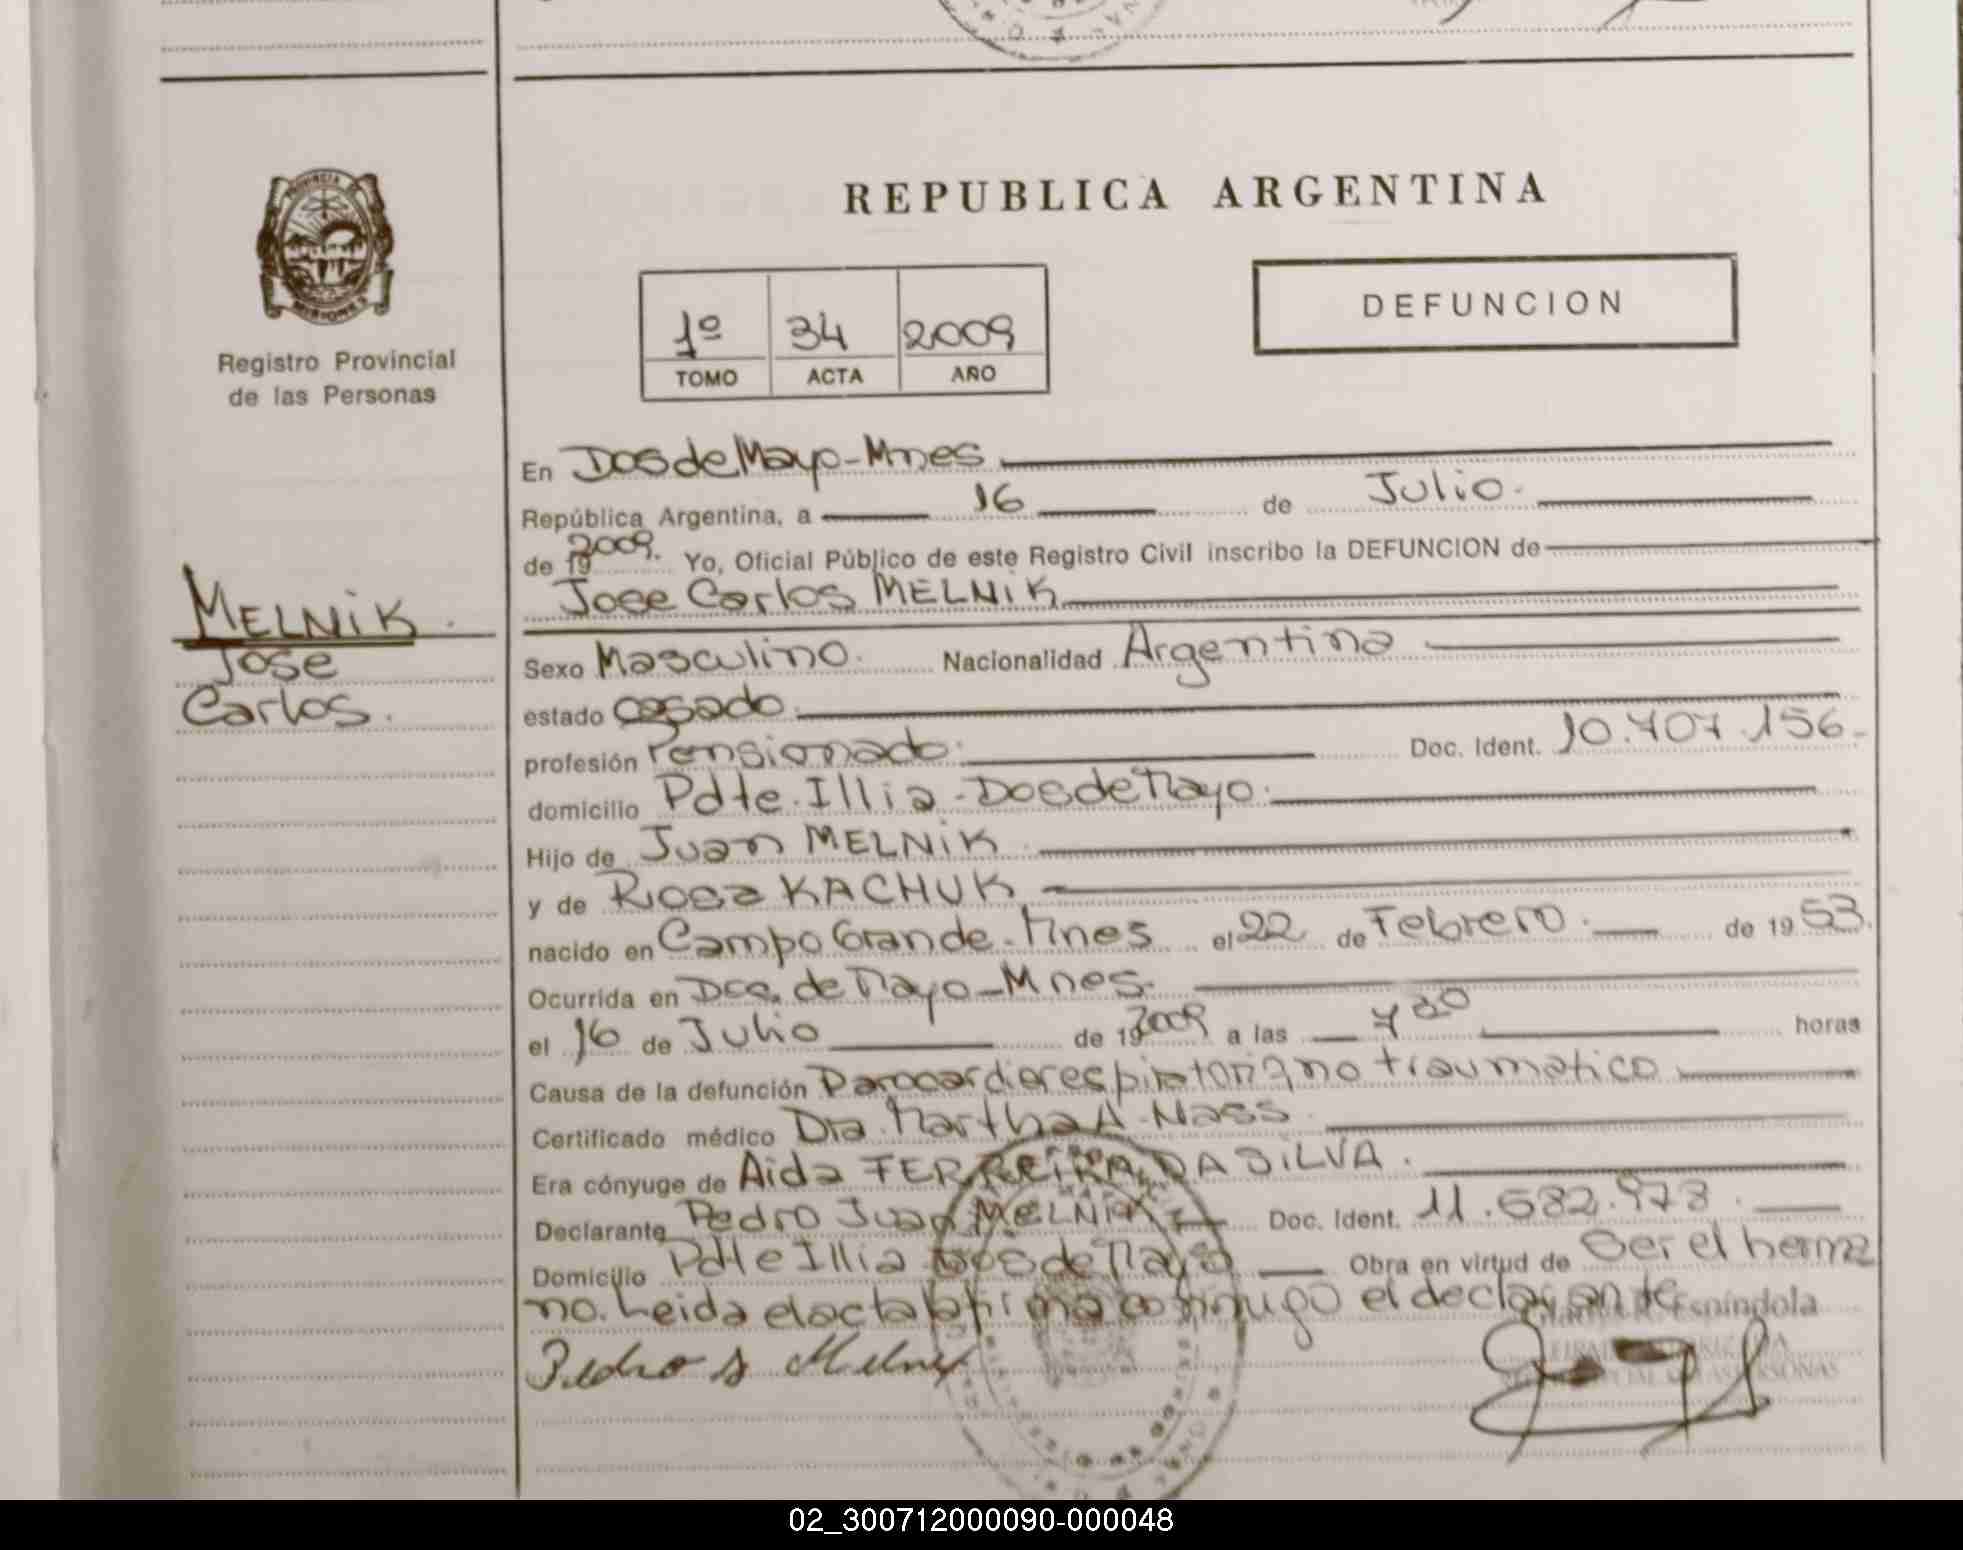 REPUBLICA ARGENTINA
PROVINCIA DE
MISIONES
Registro Provincial
de las Personas
1º 34 2009
TOMO ACTA AÑO
DEFUNCION
MELNIK.
Jose
Carlos.
En Dos de Mayo-Mnes
República Argentina, a 16 de Julio.
de 19 2009. Yo, Oficial Público de este Registro Civil inscribo la DEFUNCION de
Jose Carlos MELNIK
Sexo Masculino. Nacionalidad Argentina
estado casado.
profesión Pensionado. Doc. Ident. 10.707.156-
domicilio Pdte. Illia-Dos de Mayo.
Hijo de Juan MELNIK
y de Rosa KACHUK
nacido en Campo Grande-Mnes el 22 de Febrero. de 19 53.
Ocurrida en Dos de Mayo-Mnes.
el 16 de Julio de 19 2009 a las 7 30 horas
Causa de la defunción Parocardiorespiratorio no traumatico
Certificado médico Dra. Martha A. Nass
Era cónyuge de Aida FERREIRA DA SILVA.
Declarante Pedro Juan MELNIK Doc. Ident. 11.682.973.
Domicilio Pdte Illia Dos de Mayo Obra en virtud de Ser el herma
no. Leida el acta la firma conmigo el declarante
Pedro J Melnik
Espíndola
02_300712000090-000048